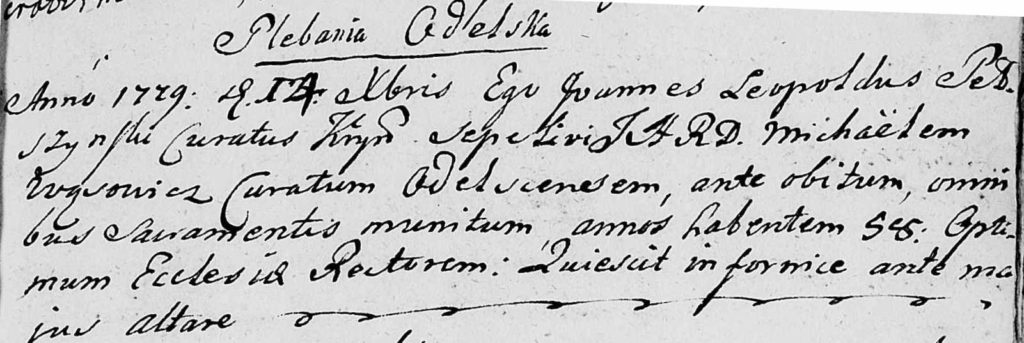 Plebania Odelska
Anno 1729: d. 14. Xbris Ego Joannes Leopoldus Ped-
szynski Curatus Kryn sepelivi A R D. Michaëlem
Curatum Odelscenesem, ante obitum, omni
bus Sacramentis munitum, annos habentem 58: Opti-
mum Ecclesiæ Rectorem: Quiescit in fornice ante ma
jus altare